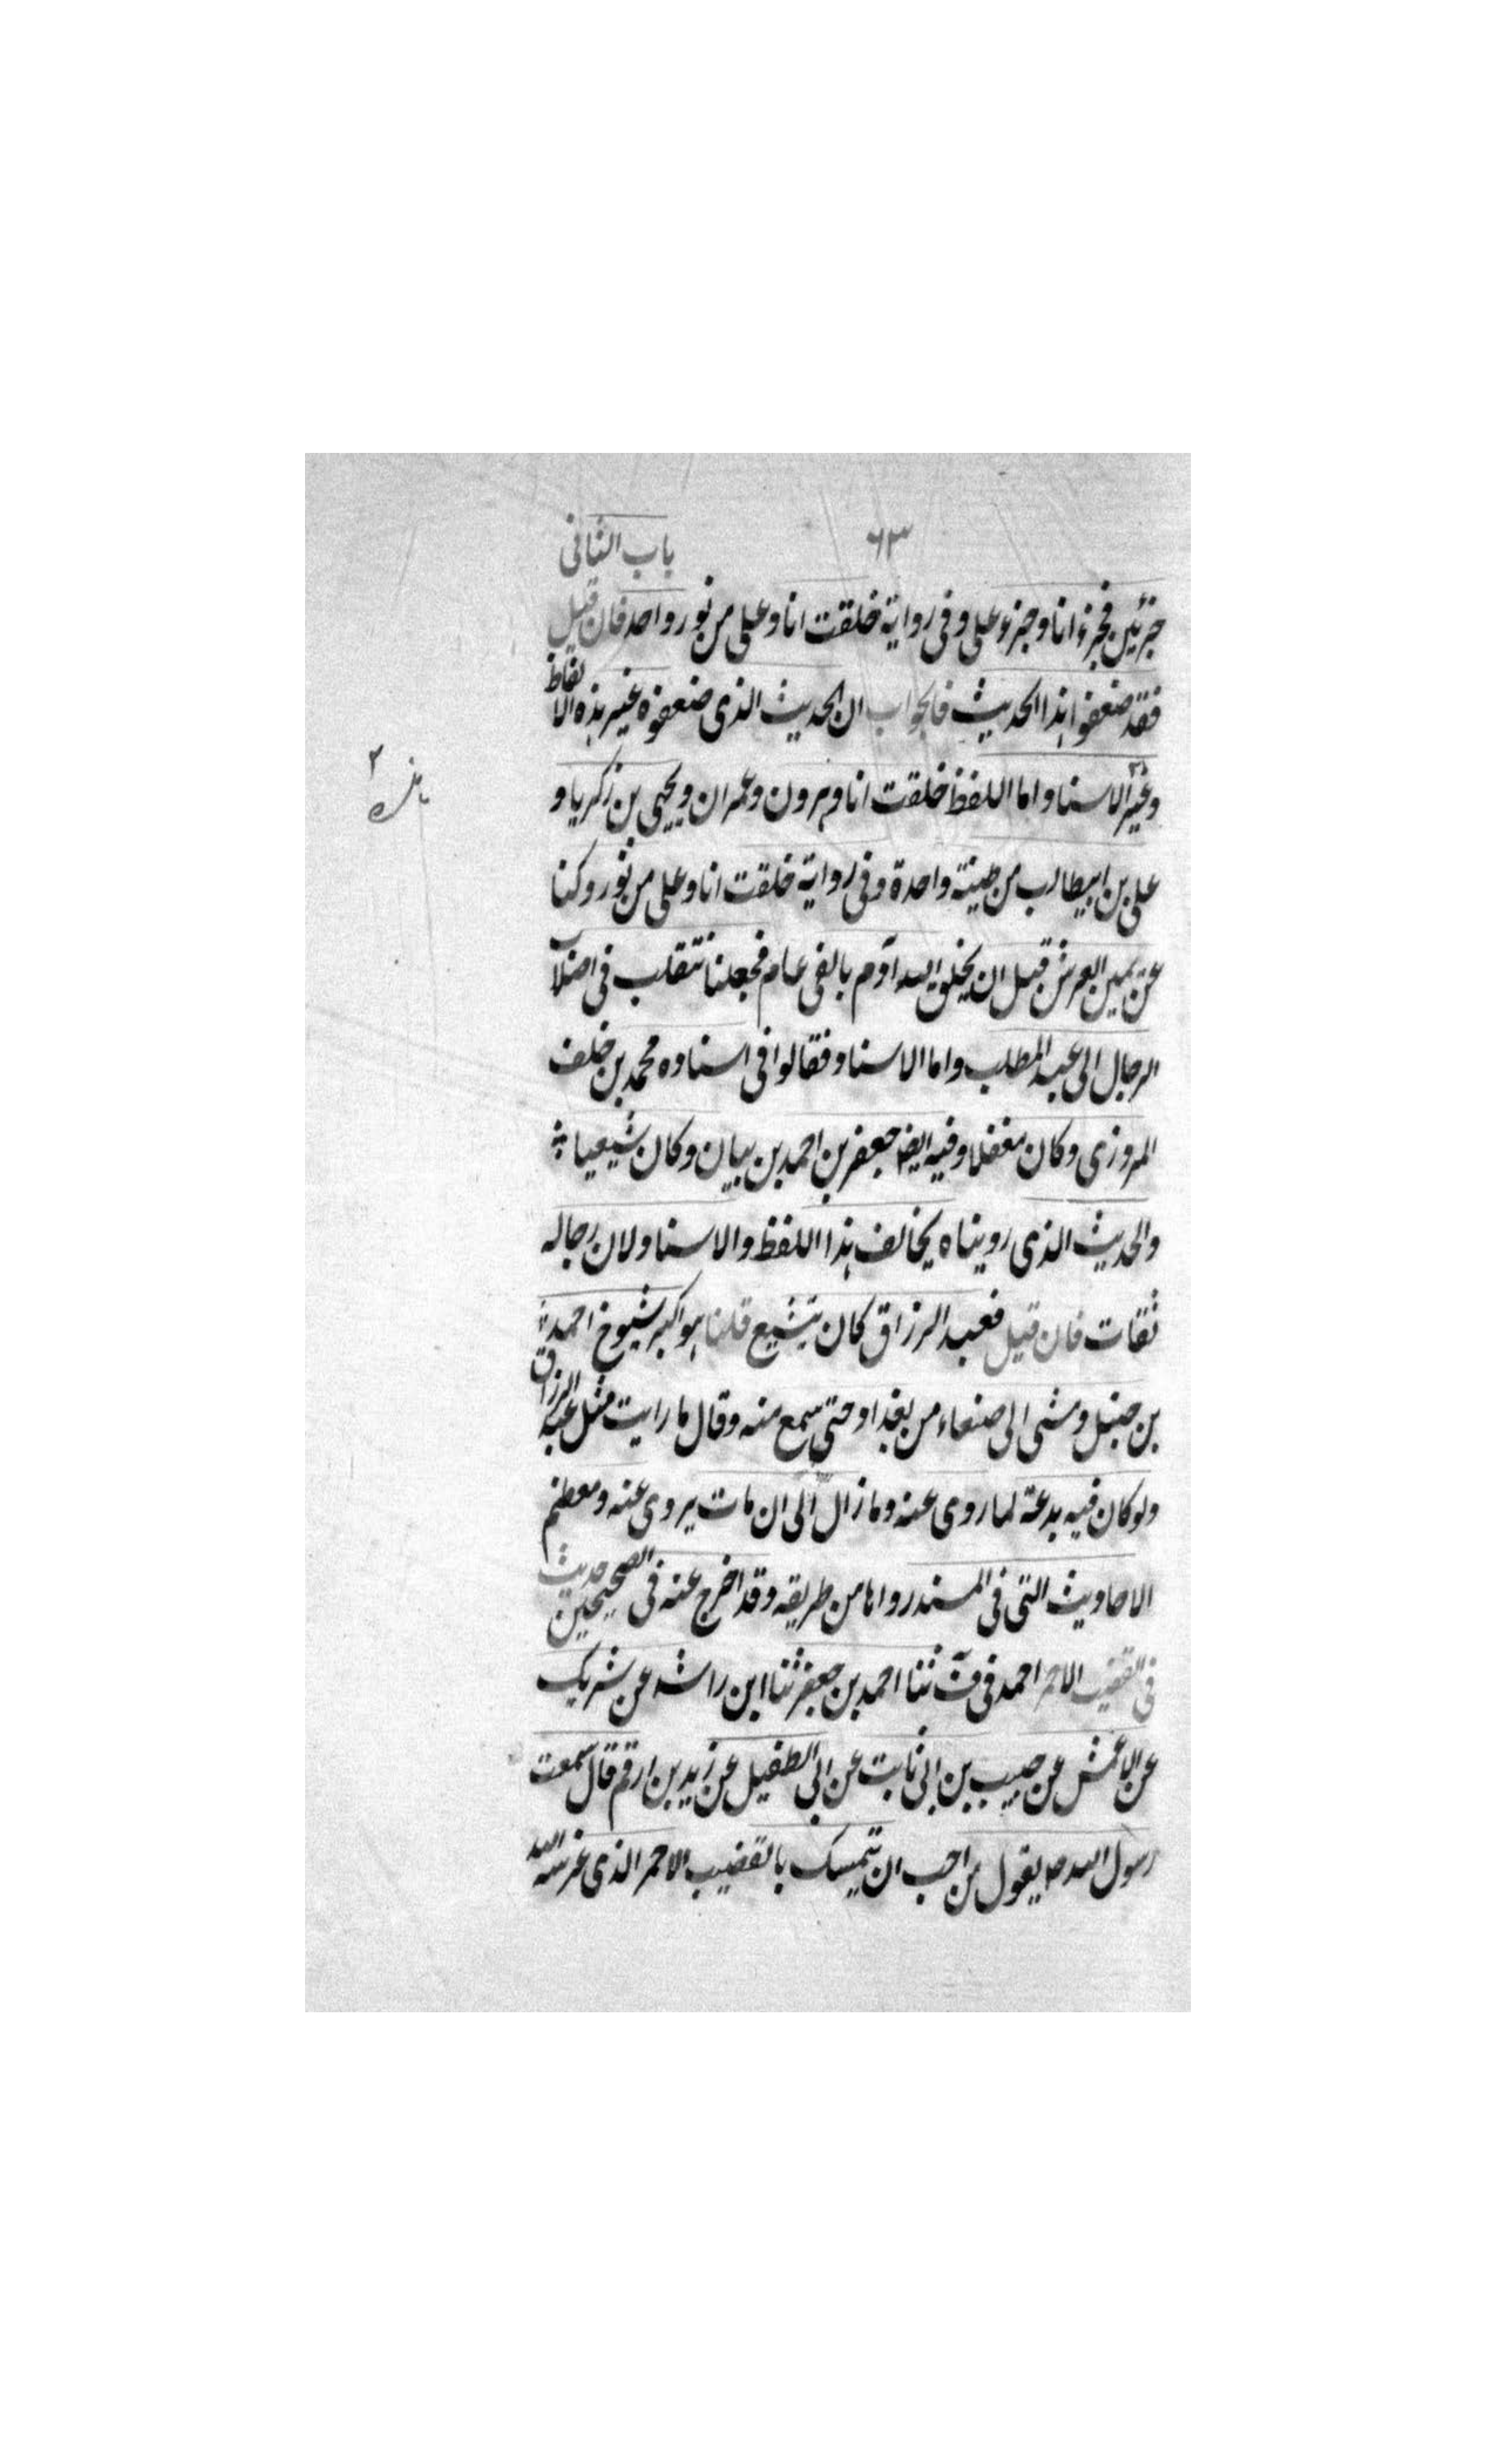 ٦٣ باب الثانی
جزئین فجزء انا وجزء علی وفی روایة خلقت انا وعلی من نور واحد فان قیل
فقد ضعفوا هذا الحدیث فالجواب ان الحدیث الذی ضعفوه غیر هذه الالفاظ
وغیر الاسناد اما اللفظ خلقت انا وهرون وعمران ویحیی بن زکریا و
علی بن ابیطالب من طینة واحدة وفی روایة خلقت انا وعلی من نور وکنا
عن یمین العرش قبل ان یخلق الله آدم بالفی عام فجعلنا نتقلب فی اصلاب
الرجال الی عبد المطلب واما الاسناد فقالوا فی اسناده محمد بن خلف
المروزی وکان مغفلا وفیه ایضا جعفر بن احمد بن بیان وکان شیعیا
والحدیث الذی رویناه یخالف هذا اللفظ والاسناد لان رجاله
ثقات فان قیل فعبد الرزاق کان یتشیع قلنا هو اکبر شیوخ احمد
بن حنبل ومشی الی صنعاء من بغداد حتی سمع منه وقال ما رایت مثل عبد الرزاق
ولو کان فیه بدعة لما روی عنه وما زال الی ان مات یروی عنه ومعظم
الاحادیث التی فی المسند رواها من طریقه وقد اخرج عنه فی الصحیحین حدیث
فی القضیب الاحمر احمد فی ثنا احمد بن جعفر ثنا ابن راشد عن شریک
عن الاعمش عن حبیب بن ابی ثابت عن ابی الطفیل عن زید بن ارقم قال سمعت
رسول الله ص یقول من احب ان یتمسک بالقضیب الاحمر الذی غرسه الله